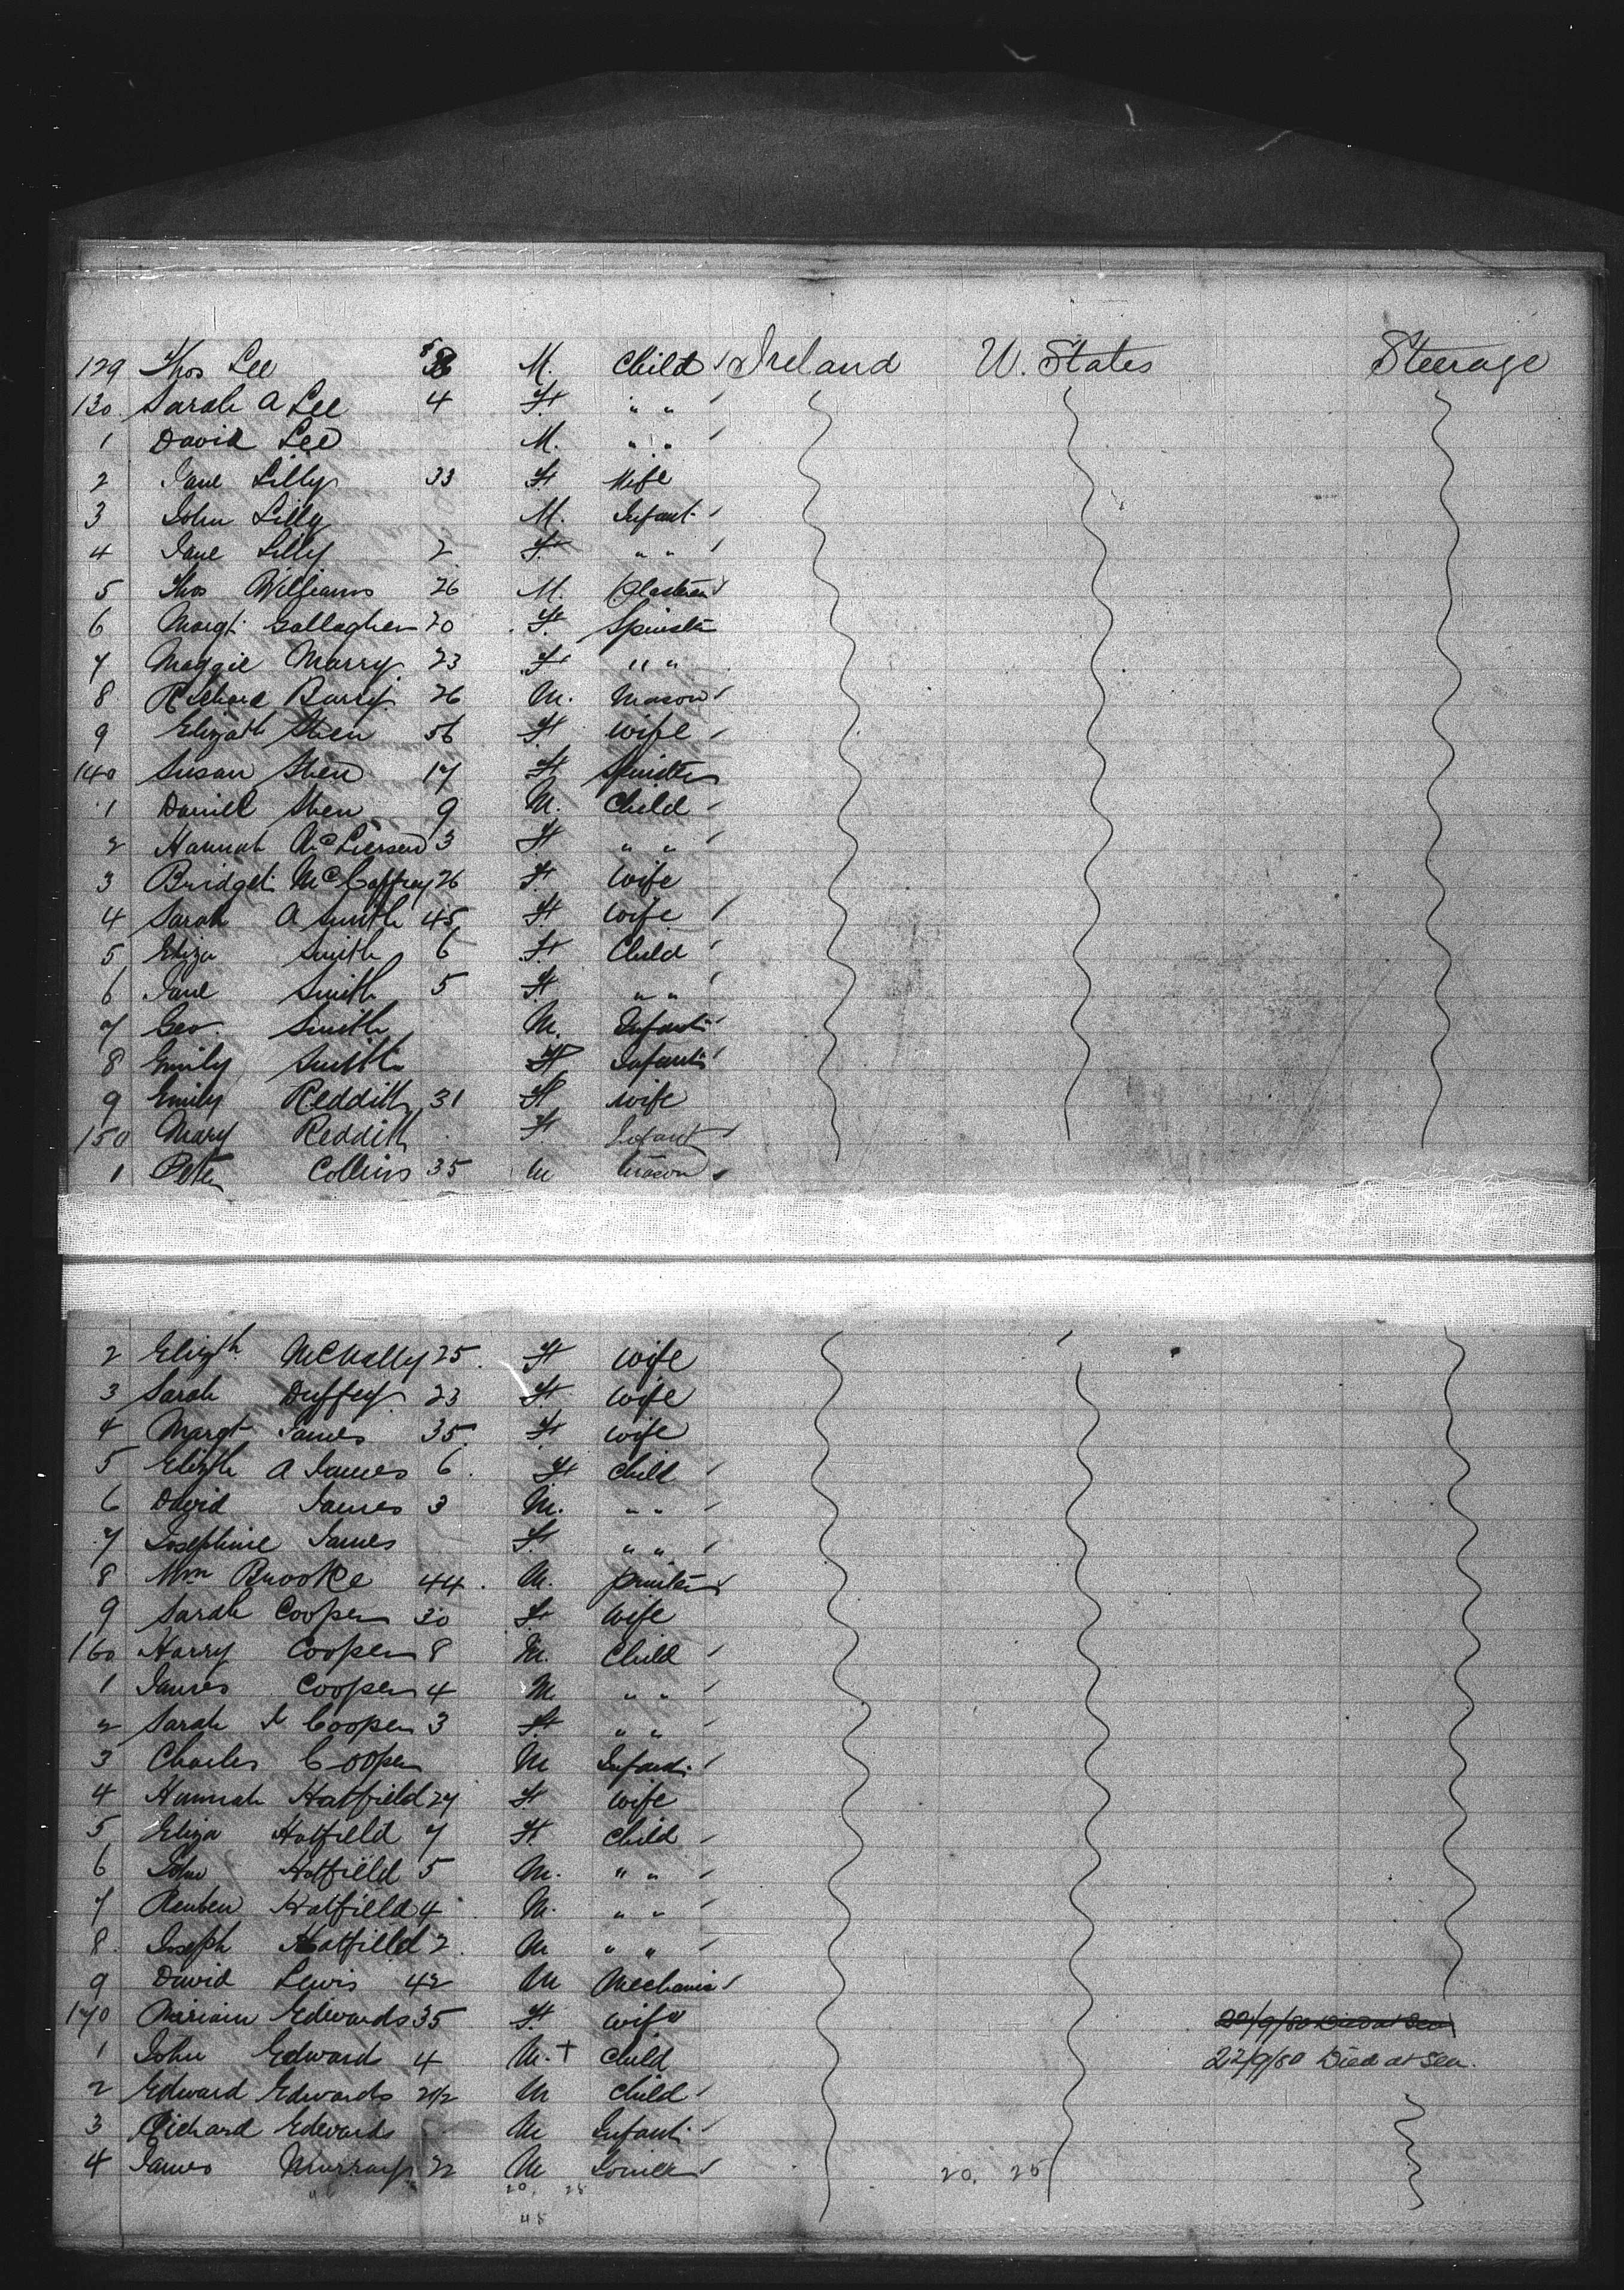 129 Thos Lee M. Child Ireland U. States Steerage
130 Sarah A Lee 4 F. " "
1 David Lee M. " "
2 Jane Lilly 33 F. Wife
3 John Lilly M. Infant
4 Jane Lilly 2 F. " "
5 Thos Williams 26 M. Plasterer
6 Margt Gallagher 20 F. Spinster
7 Maggie Marry 23 F. " "
8 Richard Barry 26 M. Mason
9 Elizath Shen 56 F. Wife
140 Susan Shen 17 F. Spinster
1 Daniel Shen 9 M. Child
2 Hannah 3 F. " "
3 Bridget McCaffrey 26 F. Wife
4 Sarah A Smith 45 F. Wife
5 Eliza Smith 6 F. Child
6 Jane Smith 5 F. " "
7 Geo. Smith M. Infant
8 Emily Smith F. Infant
9 Emily Reddith 31 F. Wife
150 Mary Reddith F. Infant
1 Peter Collins 35 M Mason
2 Elizth McNally 25 F. Wife
3 Sarah Duffey 23 F. Wife
4 Margt James 35 F. Wife
5 Elizth A James 6 F. Child
6 David James 3 M. " "
7 Josephine James F. " "
8 Wm Brooke 44 M. Printer
9 Sarah Cooper 30 F. Wife
160 Harry Cooper 8 M. Child
1 James Cooper 4 M. " "
2 Sarah Cooper 3 F. " "
3 Charles Cooper M Infant
4 Hannah Hatfield 27 F. Wife
5 Eliza Hatfield 7 F. Child
6 John Hatfield 5 M. " "
7 Reuben Hatfield 4 M. " "
8 Joseph Hatfield 2 M " "
9 David Lewis 42 M Mechanic
170 Miriam Edwards 35 F. Wife 22/9/80 Died at Sea
1 John Edward 4 M. + Child 22/9/80 Died at Sea.
2 Edward Edwards 2 1/2 M Child
3 Richard Edwards M Infant
4 James Murray 22 M Joiner 20. 25
20. 28
48